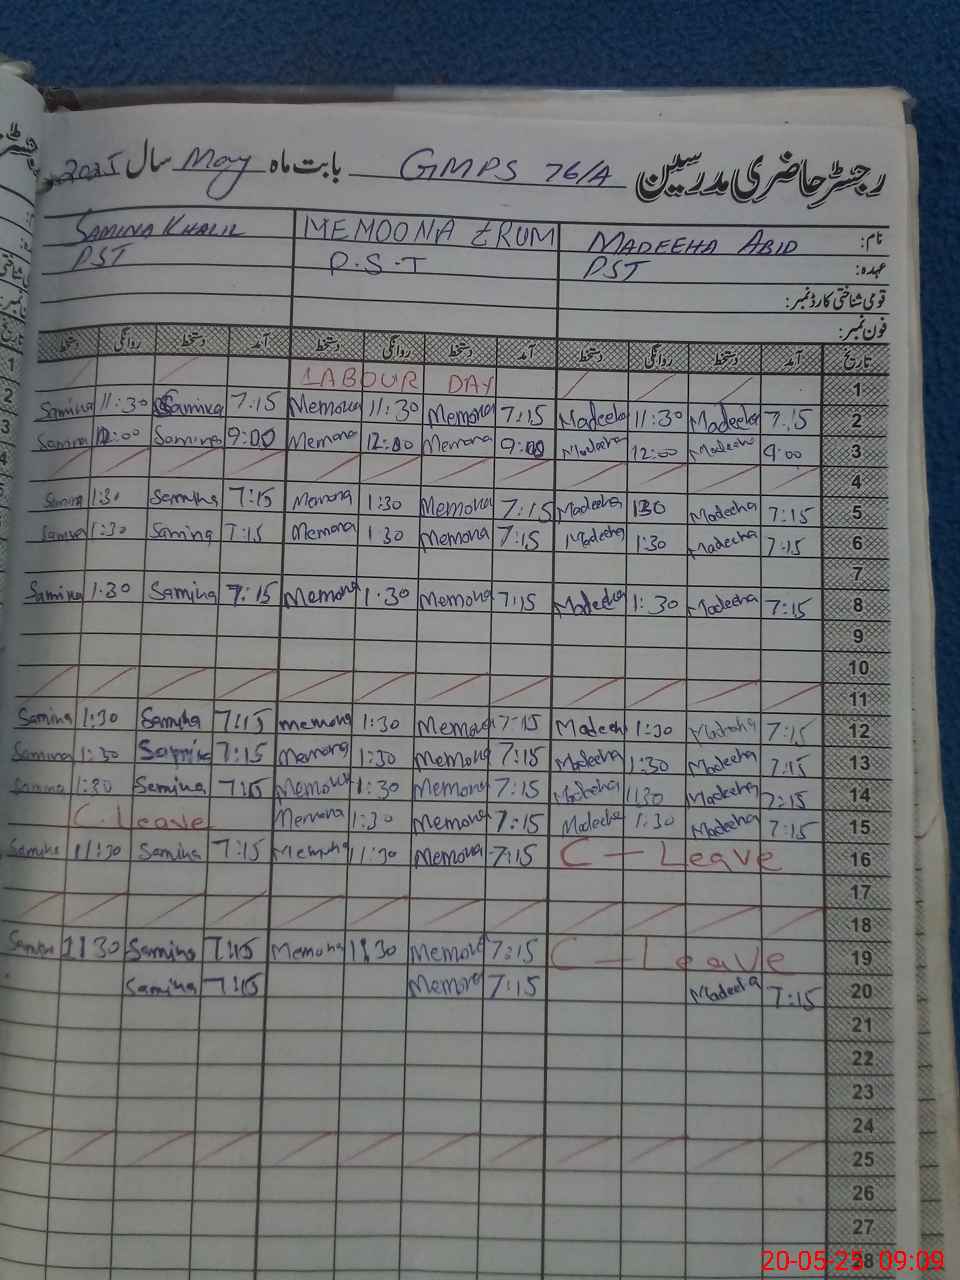 رجسٹر حاضری مدرسین GMPS 76/A بابت ماہ May سال 2025
نام: MADEEHA ABID MEMOONA ERUM SAMINA KHALIL
عہدہ: PST P.S.T PST
قومی شناختی کارڈ نمبر:
فون نمبر:
تاریخ آمد دستخط روانگی دستخط آمد دستخط روانگی دستخط آمد دستخط روانگی دستخط
1 LABOUR DAY
2 7:15 Madeeha 11:30 Madeeha 7:15 Memona 11:30 Memona 7:15 Samina 11:30 Samina
3 9:00 Madeeha 12:00 Madeeha 9:00 Memona 12:00 Memona 9:00 Samina 12:00 Samina
4
5 7:15 Madeeha 1:30 Madeeha 7:15 Memona 1:30 Memona 7:15 Samina 1:30 Samina
6 7:15 Madeeha 1:30 Madeeha 7:15 Memona 1:30 Memona 7:15 Samina 1:30 Samina
7
8 7:15 Madeeha 1:30 Madeeha 7:15 Memona 1:30 Memona 7:15 Samina 1:30 Samina
9
10
11
12 7:15 Madeeha 1:30 Madeeh 7:15 Memona 1:30 memona 7:15 Samina 1:30 Samina
13 7:15 Madeeha 1:30 Madeeha 7:15 Memona 1:30 Memona 7:15 Samina 1:30 Samina
14 7:15 Madeeha 1:30 Madeeha 7:15 Memona 1:30 Memona 7:15 Samina 1:30 Samina
15 7:15 Madeeha 1:30 Madeeha 7:15 Memona 1:30 Memona C. Leave
16 C - Leave 7:15 Memona 11:30 Memona 7:15 Samina 11:30 Samina
17
18
19 C - Leave 7:15 Memona 11:30 Memona 7:15 Samina 11:30 Samina
20 7:15 Madeeha 7:15 Memona 7:15 Samina
21
22
23
24
25
26
27
28
20-05-25 09:09